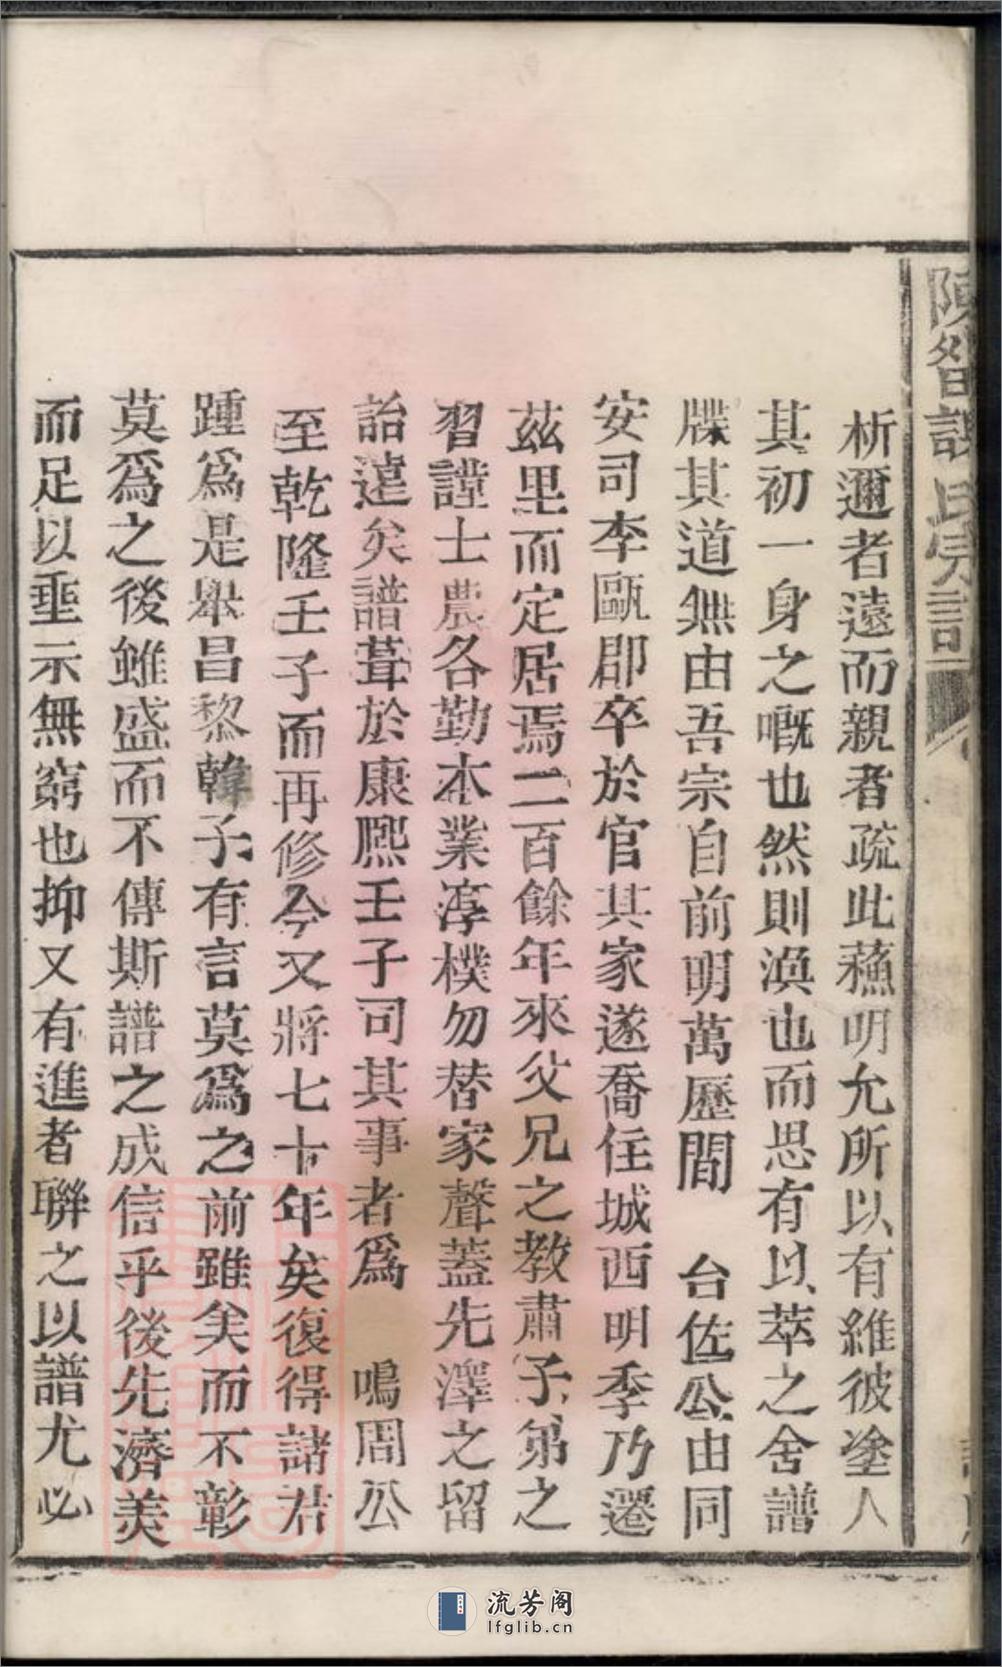 析邇者遠而親者疏此蘓明允所以有維彼塗人
其初一身之嘅也然則渙也而思有以萃之舍譜
牒其道無由吾宗自前明萬歷間 台佐公由同
安司李甌郡卒於官其家遂喬住城西明季乃遷
茲里而定居焉二百餘年來父兄之教肅子弟之
習謹士農各勤本業淳樸勿替家聲蓋先澤之留
詒遠矣譜葺於康熈壬子司其事者爲 鳴周公
至乾隆壬子而再修今又將七十年矣復得諸君
踵爲是舉昌黎韓子有言莫爲之前雖美而不彰
莫爲之後雖盛而不傳斯譜之成信乎後先濟美
而足以垂示無窮也抑又有進者聯之以譜尤必
流芳阁
lfglib.cn